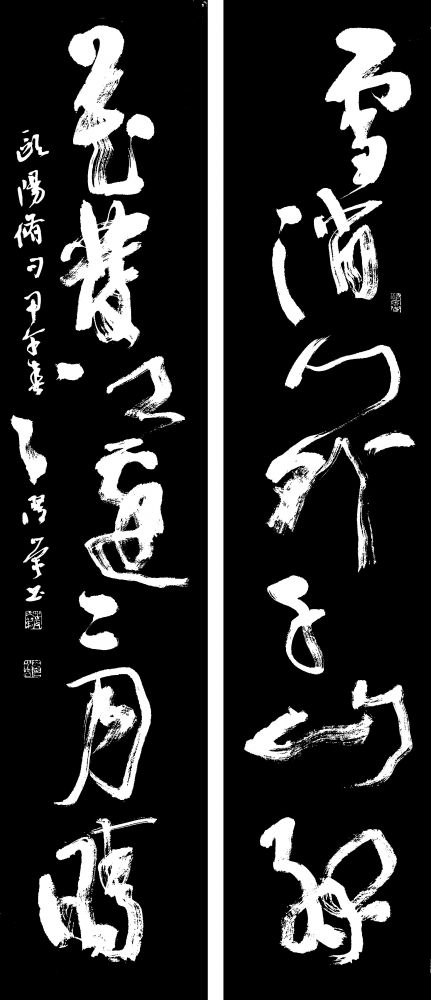 雪消門外千山綠
花發江邊二月晴
歐陽脩句甲午春 書